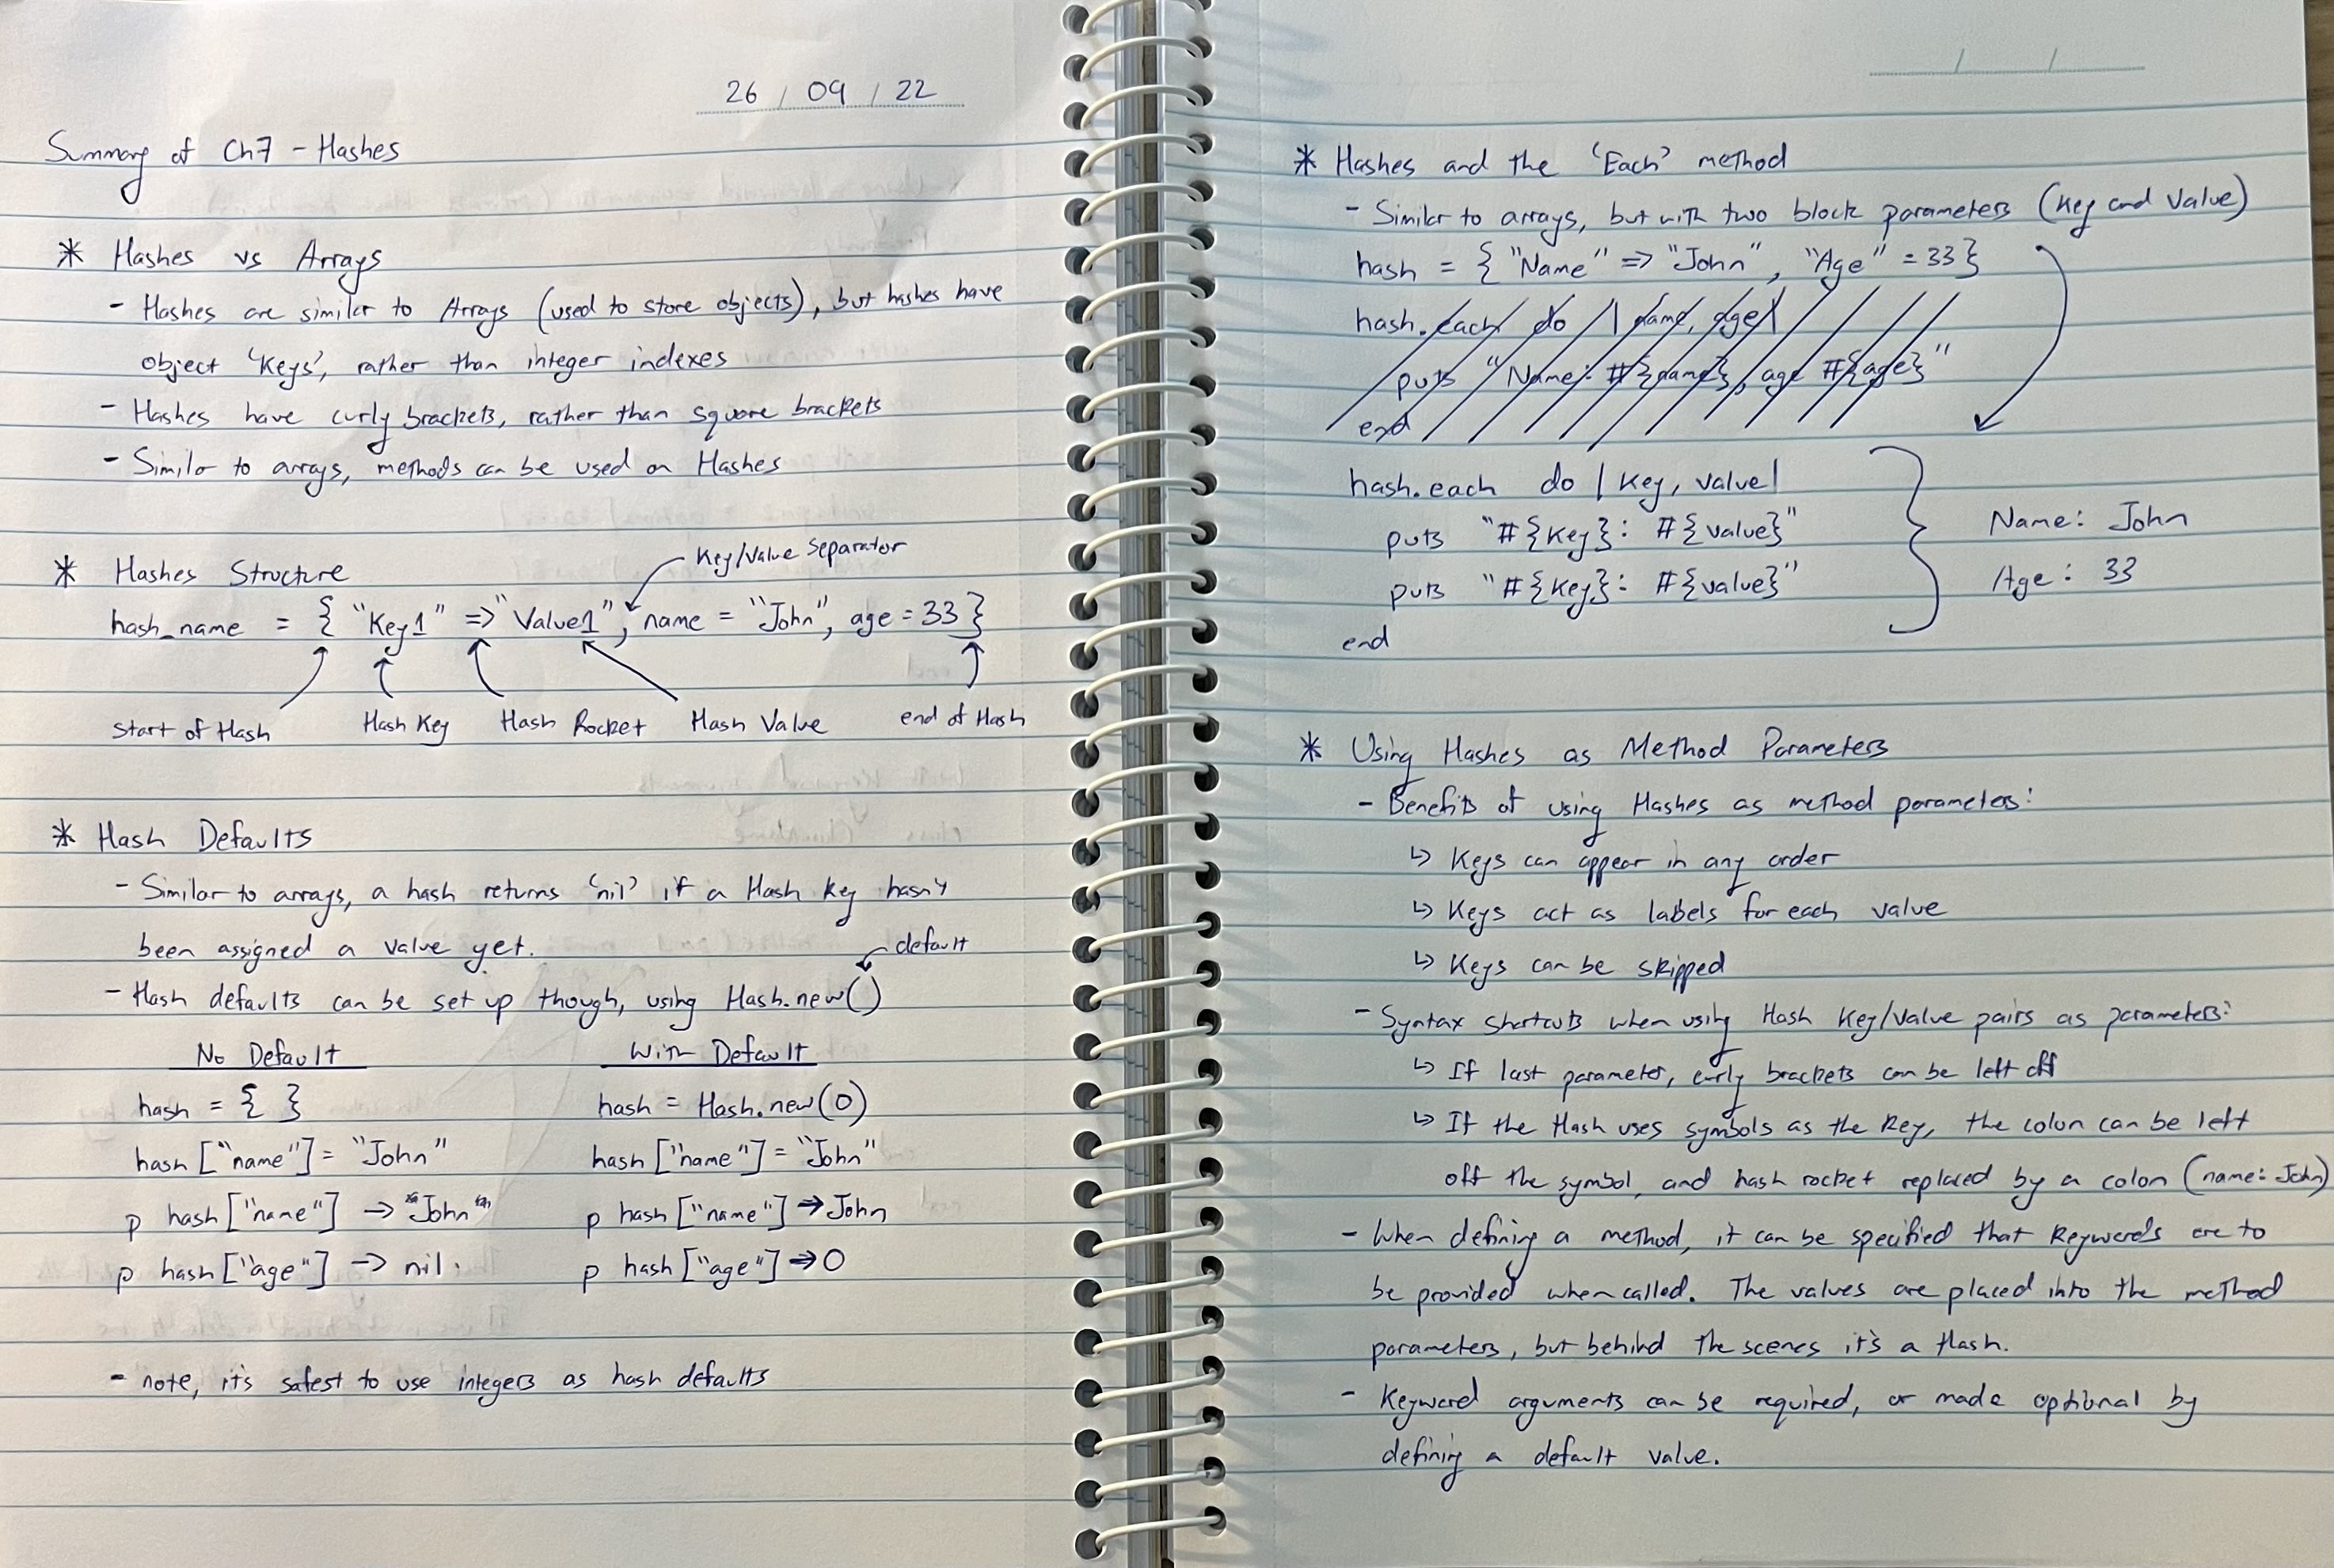 26 / 09 / 22
Summary of Ch7 - Hashes
* Hashes vs Arrays
- Hashes are similar to Arrays (used to store objects), but hashes have
object 'Keys', rather than integer indexes
- Hashes have curly brackets, rather than square brackets
- Similar to arrays, methods can be used on Hashes
Key/Value Separator
* Hashes Structure
hash_name = { "Key1" => "Value1", name = "John", age = 33 }
start of Hash Hash Key Hash Rocket Hash Value end of Hash
* Hash Defaults
- Similar to arrays, a hash returns 'nil' if a Hash Key hasn't
been assigned a value yet.
default
- Hash defaults can be set up though, using Hash.new()
No Default With Default
hash = { } hash = Hash.new(0)
hash ["name"] = "John" hash ["name"] = "John"
p hash ["name"] -> "John" p hash ["name"] -> John
p hash ["age"] -> nil. p hash ["age"] -> 0
- note, it's safest to use integers as hash defaults
/ /
* Hashes and the 'Each' method
- Similar to arrays, but with two block parameters (Key and Value)
hash = { "Name" => "John", "Age" = 33 }
hash.each do | name, age |
puts "Name: #{name}, age #{age}"
end
hash.each do | Key, value |
puts "#{Key}: #{value}" Name: John
puts "#{Key}: #{value}" Age: 33
end
* Using Hashes as Method Parameters
- Benefits of using Hashes as method parameters:
↳ Keys can appear in any order
↳ Keys act as labels for each value
↳ Keys can be skipped
- Syntax shortcuts when using Hash Key/Value pairs as parameters:
↳ If last parameter, curly brackets can be left off
↳ If the Hash uses symbols as the Key, the colon can be left
off the symbol, and hash rocket replaced by a colon (name: John)
- When defining a method, it can be specified that Keywords are to
be provided when called. The values are placed into the method
parameters, but behind the scenes it's a Hash.
- Keyword arguments can be required, or made optional by
defining a default value.